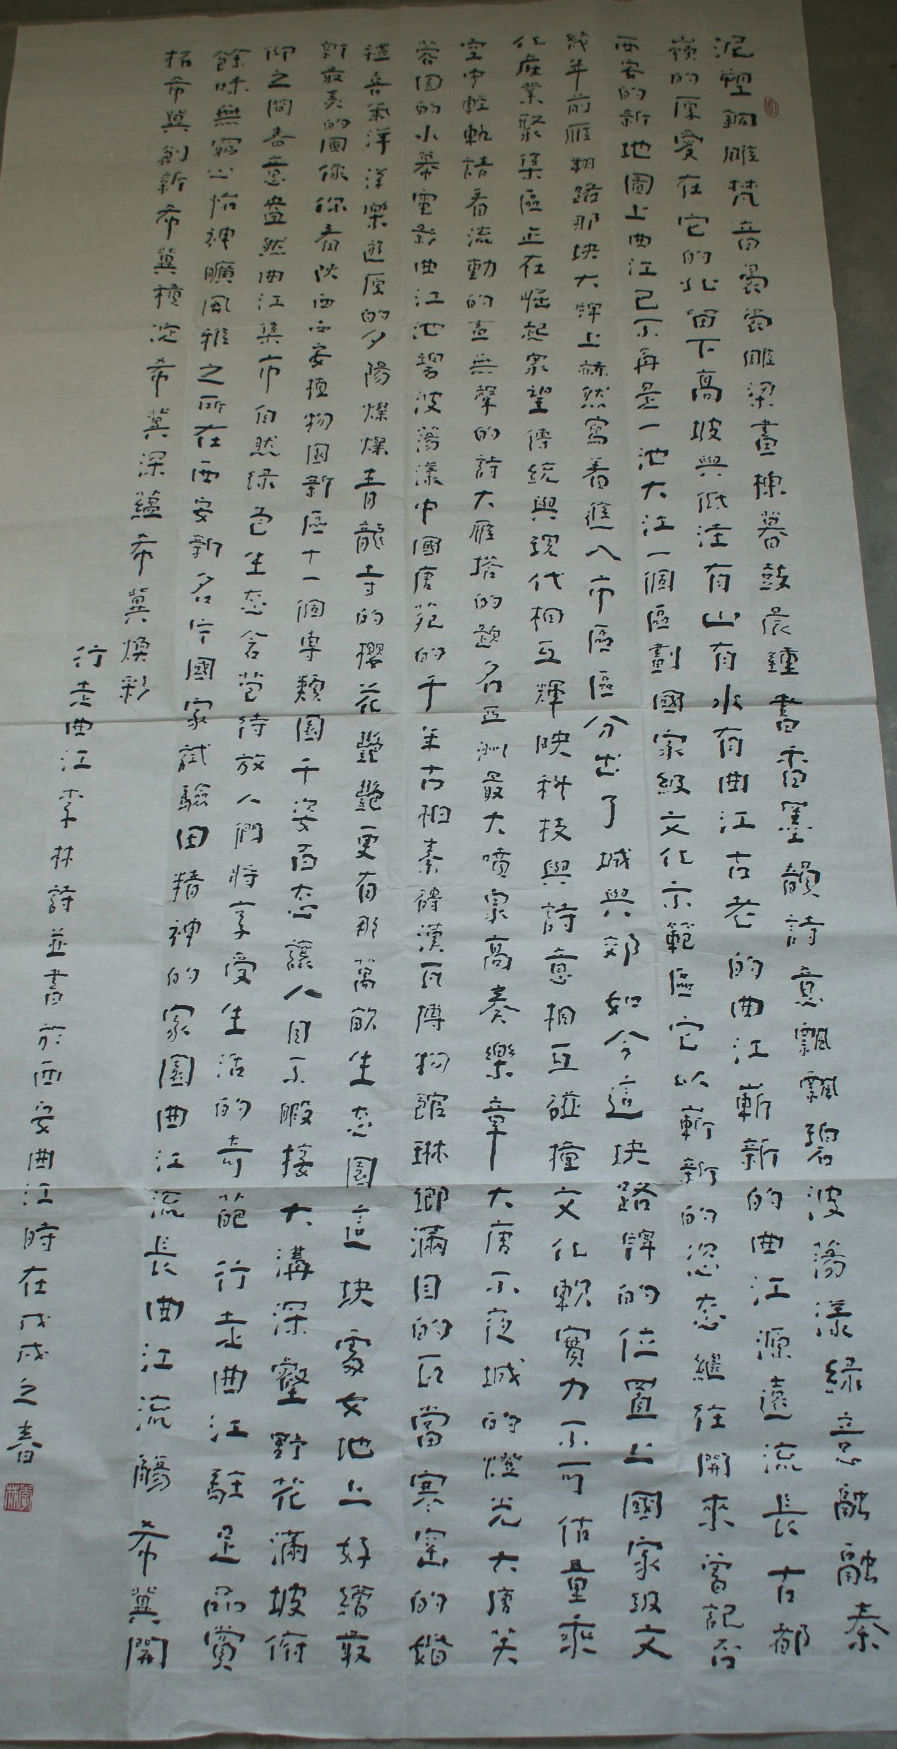 泥塑銅雕梵音裊裊雕梁畫棟暮鼓晨鐘書香墨韻詩意飄飄碧波蕩漾綠意融融秦
嶺的厚愛在它的北留下高坡與低洼有山有水有曲江古老的曲江嶄新的曲江源遠流長古都
西安的新地圖上曲江已不再是一池大江一個區劃國家級文化示範區它以嶄新的姿態繼往開來嘗記否
幾年前雁翔路那块大牌上赫然寫着進入市區區分出了城與郊如今這块路牌的位置上國家級文
化產業聚集區正在崛起眾望傳統與現代相互輝映科技與詩意相互碰撞文化軟實力不可估量乘
空中輕軌請看流動的畫無聲的詩大雁塔的題名亞洲最大噴泉高奏樂章大唐不夜城的燈光大唐芙
蓉園的水幕電影曲江池碧波蕩漾中國唐苑的千年古柏秦磚漢瓦博物館琳瑯滿目的瓦當寒窯的婚
禮喜氣洋洋樂遊原的夕陽燦燦青龍寺的櫻花艷艷更有那萬畝生态園這块處女地上好繪最
新最美的圖你你看陝西西安植物園新區十一個專類園千姿百态讓人目不暇接大溝深壑野花滿坡俯
仰之間春意盎然曲江集市自然綠色生态含苞待放人們將享受生活的奇葩行走曲江駐足品賞
餘味無窮心怡神曠風雅之所在西安新名片國家試驗田精神的家園曲江流長曲江流觴希冀開
拓希冀創新希冀積淀希冀深蘊希冀煥彩
行走曲江李林詩並書於西安曲江時在戊戌之春